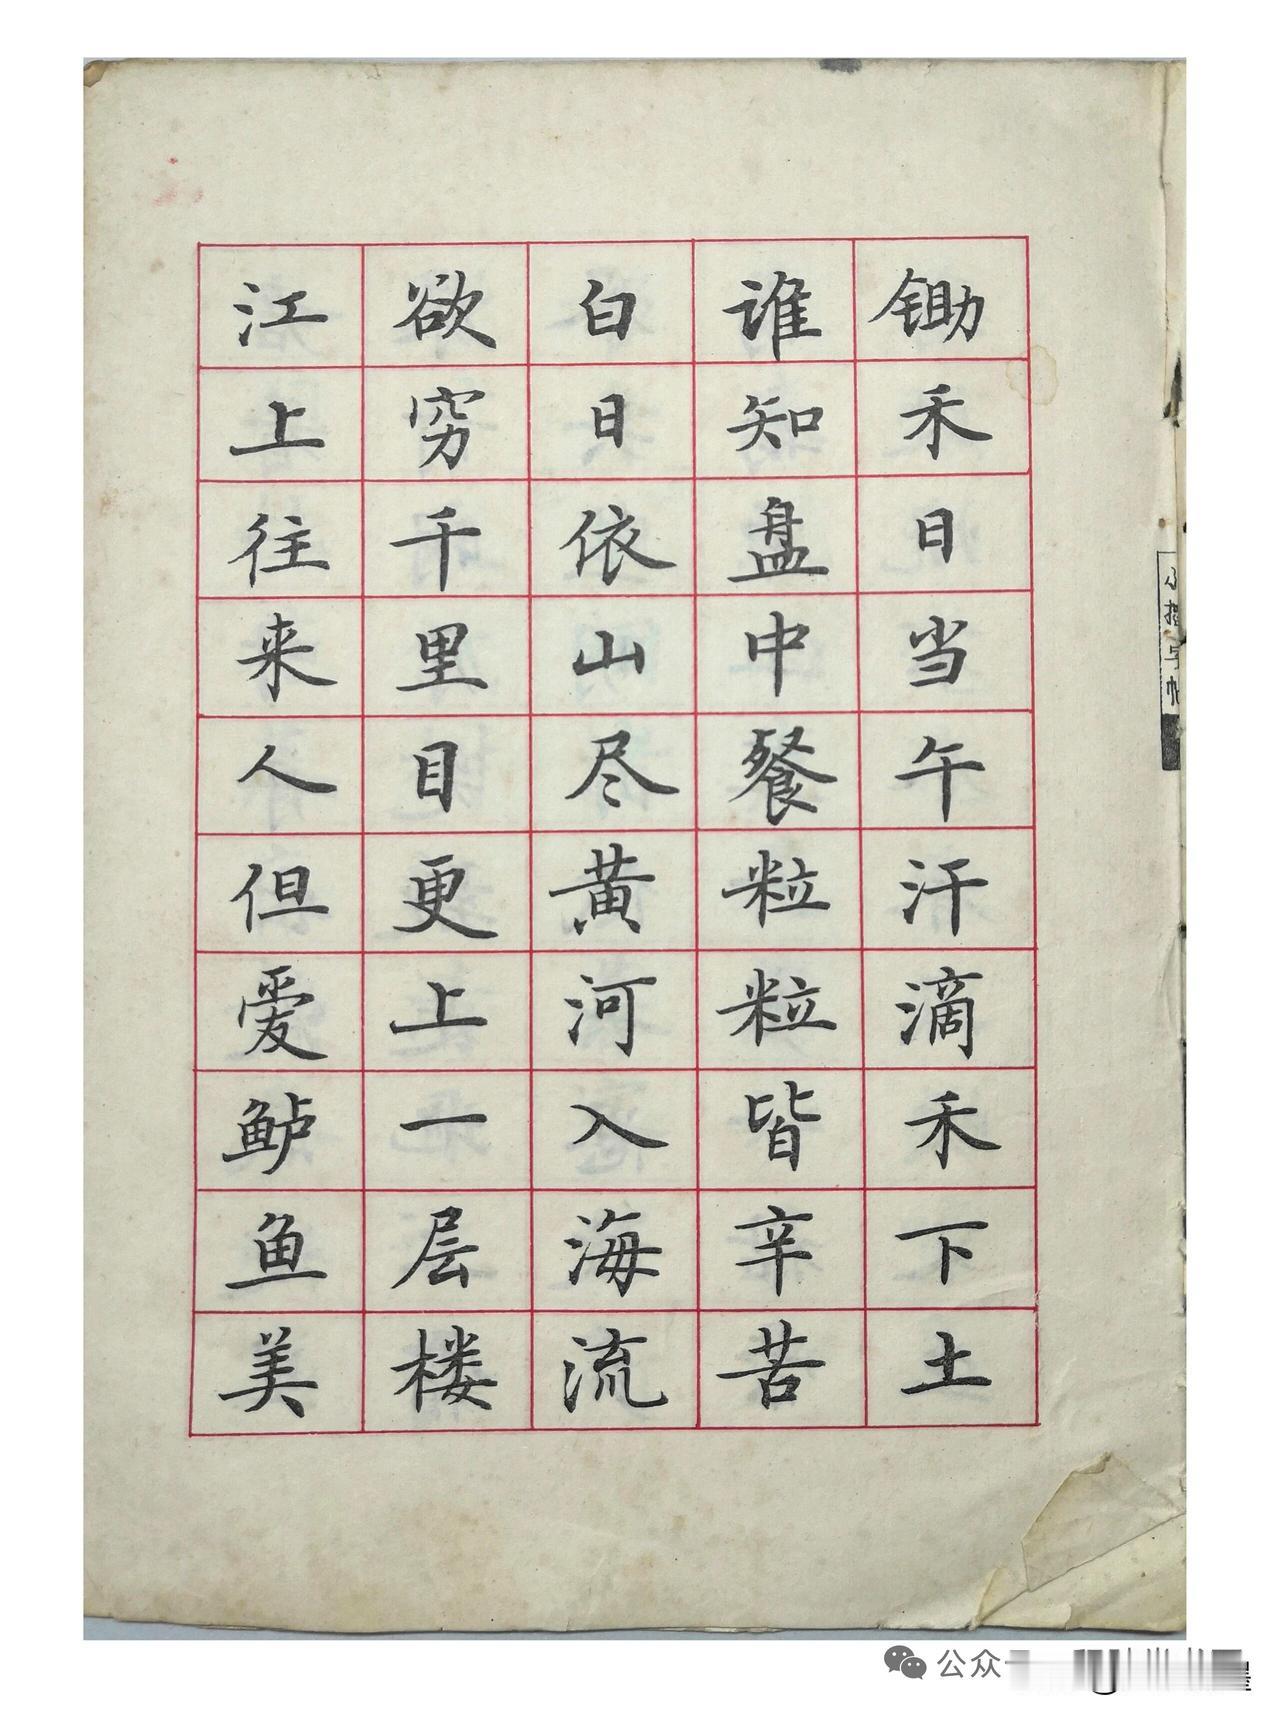 锄禾日当午汗滴禾下土
谁知盘中餐粒粒皆辛苦
白日依山尽黄河入海流
欲穷千里目更上一层楼
江上往来人但爱鲈鱼美
小楷字帖
公众